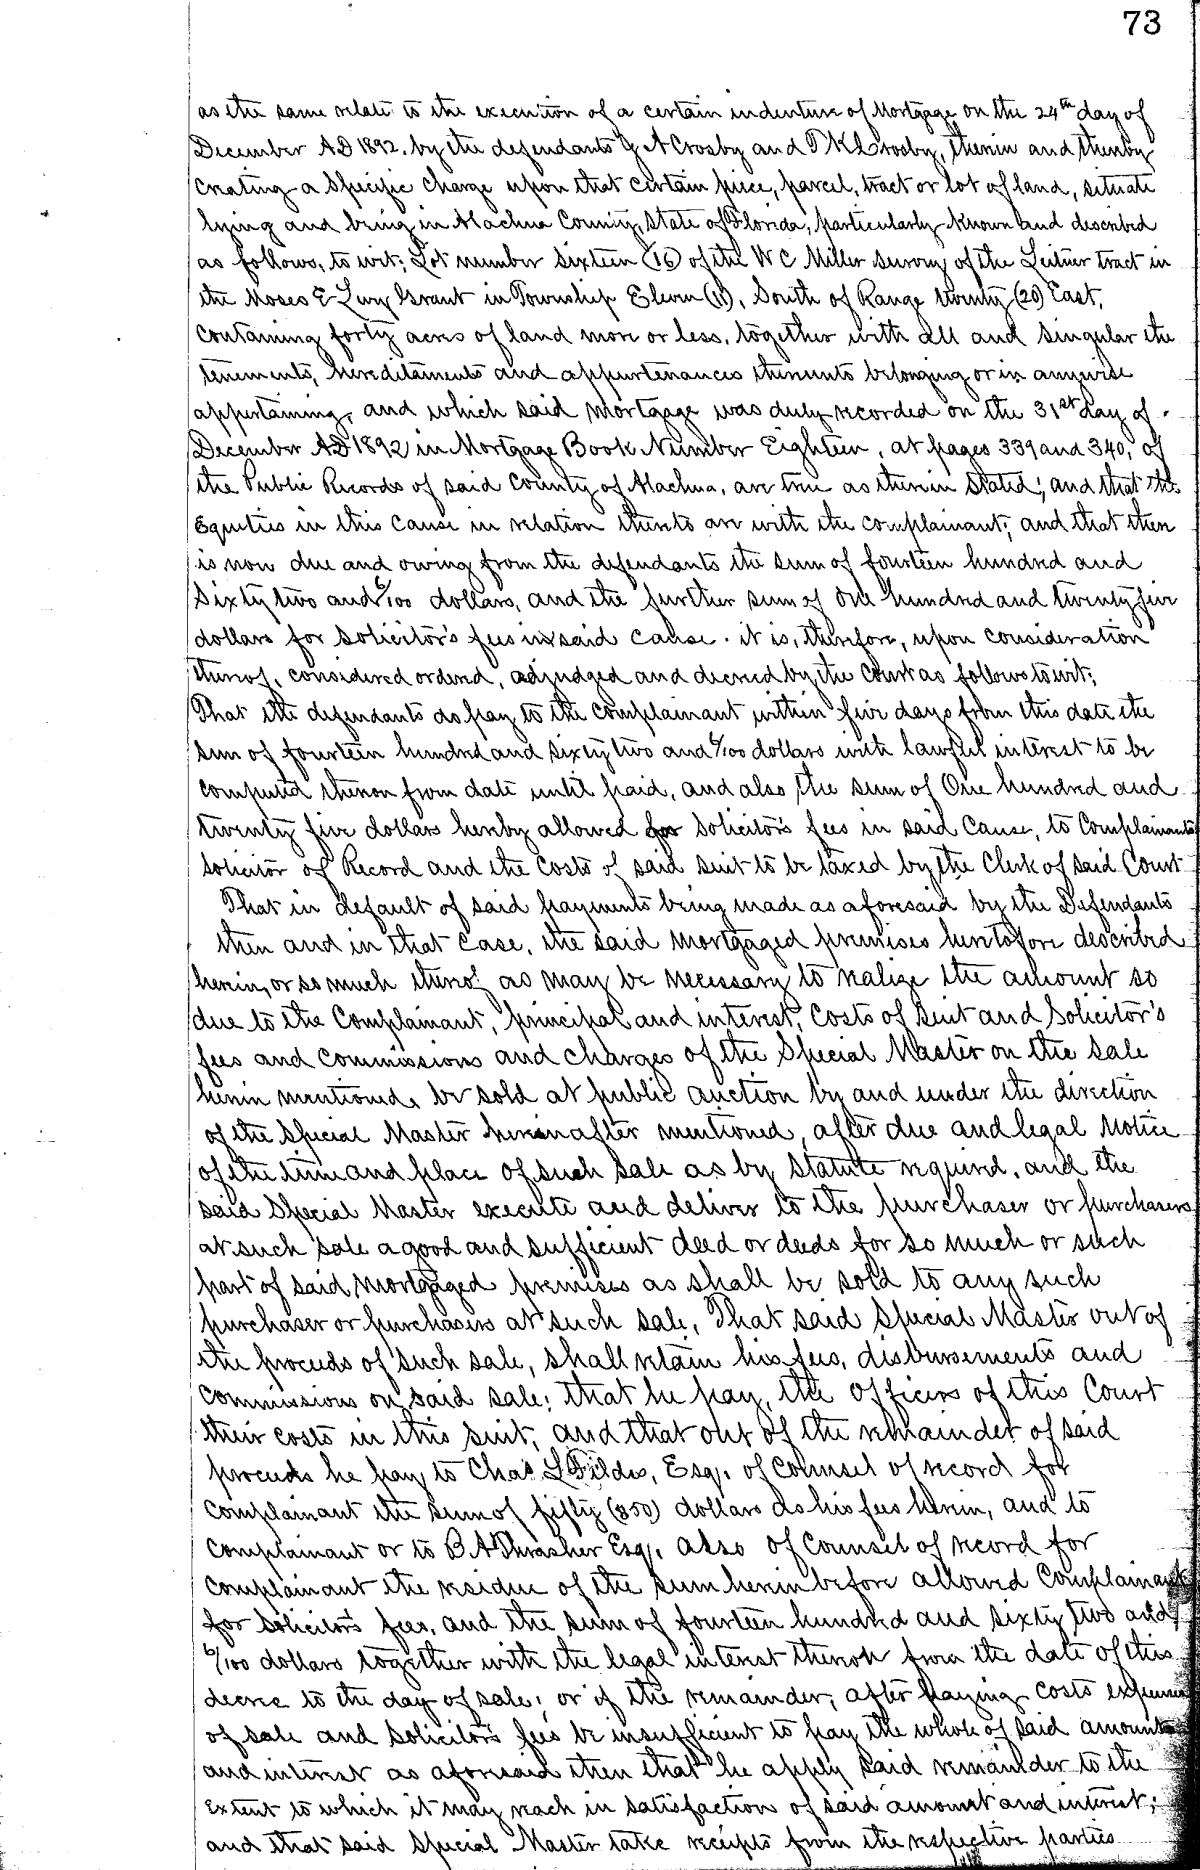 73
as the same relate to the execution of a certain indenture of Mortgage on the 24th day of
December AD 1892, by the defendants A Crosby and Crosby, therein and thereby
creating a specific charge upon that certain piece, parcel, tract or lot of land, situate
lying and being in Alachua County, State of Florida, particularly known and described
as follows, to wit; Lot number sixteen (16) of the W C Miller survey of the Leitner tract in
the Moses E Levy Grant in Township Eleven (11), South of Range twenty (20) East,
containing forty acres of land more or less, together with all and singular the
tenements, hereditaments and appurtenances thereunto belonging or in anywise
appertaining, and which said mortgage was duly recorded on the 31st day of
December AD 1892 in Mortgage Book Number Eighteen, at pages 339 and 340, of
the Public Records of said County of Alachua, are true as therein stated; and that the
Equities in this cause in relation thereto are with the complainant; and that there
is now due and owing from the defendants the sum of fourteen hundred and
Sixty two and 6/100 dollars, and the further sum of One hundred and twenty five
dollars for solicitor's fees in said cause. it is, therefore, upon consideration
thereof, considered ordered, adjudged and decreed by the Court as follows to wit;
That the defendants do pay to the complainant within five days from this date the
sum of fourteen hundred and sixty two and 6/100 dollars with lawful interest to be
computed thereon from date until paid, and also the sum of One hundred and
twenty five dollars hereby allowed for solicitor's fees in said cause, to Complainants
solicitor of Record and the costs of said suit to be taxed by the Clerk of said Court
That in default of said payments being made as aforesaid by the Defendants
then and in that case, the said mortgaged premises heretofore described
herein, or so much thereof as may be necessary to realize the amount so
due to the Complainant, principal and interest, costs of suit and Solicitor's
fees and commissions and charges of the Special Master on the sale
herein mentioned, be sold at public auction by and under the direction
of the Special Master hereinafter mentioned, after due and legal notice
of the time and place of such sale as by statute required, and the
said Special Master execute and deliver to the purchaser or purchasers
at such sale a good and sufficient deed or deeds for so much or such
part of said mortgaged premises as shall be sold to any such
purchaser or purchasers at such sale, That said Special Master out of
the proceeds of such sale, shall retain his fees, disbursements and
commissions on said sale; that he pay, the officers of this Court
their costs in this suit, and that out of the remainder of said
proceeds he pay to Chas L Fildes, Esq. of counsel of record for
complainant the sum of fifty ($50) dollars as his fees herein, and to
complainant or to B A Thrasher Esq, also of counsel of record for
complainant the residue of the sum herein before allowed Complainant
for solicitors fees, and the sum of fourteen hundred and sixty two and
6/100 dollars together with the legal interest thereon from the date of this
decree to the day of sale; or if the remainder, after paying costs expenses
of sale and solicitor's fees be insufficient to pay the whole of said amounts
and interest as aforesaid then that he apply said remainder to the
extent to which it may reach in satisfaction of said amount and interest;
and that said Special Master take receipts from the respective parties